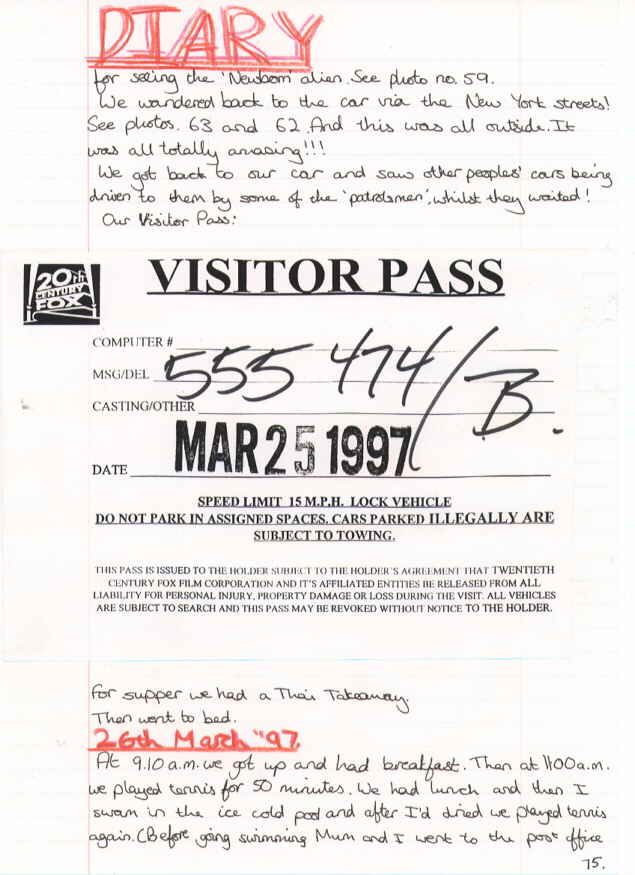 DIARY
for seeing the 'Newborn' alien. See photo no. 59.
We wandered back to the car via the New York streets!
See photos. 63 and 62. And this was all outside. It
was all totally amazing!!!
We got back to our car and saw other peoples' cars being
driven to them by some of the 'patrolsmen', whilst they waited!
Our Visitor Pass:
20th
CENTURY
FOX
VISITOR PASS
COMPUTER #
MSG/DEL 555 474/B.
CASTING/OTHER
DATE MAR 25 1997
SPEED LIMIT 15 M.P.H. LOCK VEHICLE
DO NOT PARK IN ASSIGNED SPACES. CARS PARKED ILLEGALLY ARE
SUBJECT TO TOWING.
THIS PASS IS ISSUED TO THE HOLDER SUBJECT TO THE HOLDER'S AGREEMENT THAT TWENTIETH
CENTURY FOX FILM CORPORATION AND IT'S AFFILIATED ENTITIES BE RELEASED FROM ALL
LIABILITY FOR PERSONAL INJURY, PROPERTY DAMAGE OR LOSS DURING THE VISIT. ALL VEHICLES
ARE SUBJECT TO SEARCH AND THIS PASS MAY BE REVOKED WITHOUT NOTICE TO THE HOLDER.
For supper we had a Thai Takeaway.
Then went to bed.
26th March "97.
At 9.10 a.m. we got up and had breakfast. Then at 11:00 a.m.
we played tennis for 50 minutes. We had lunch and then I
swam in the ice cold pool and after I'd dried we played tennis
again. (Before going swimming Mum and I went to the post office
75.